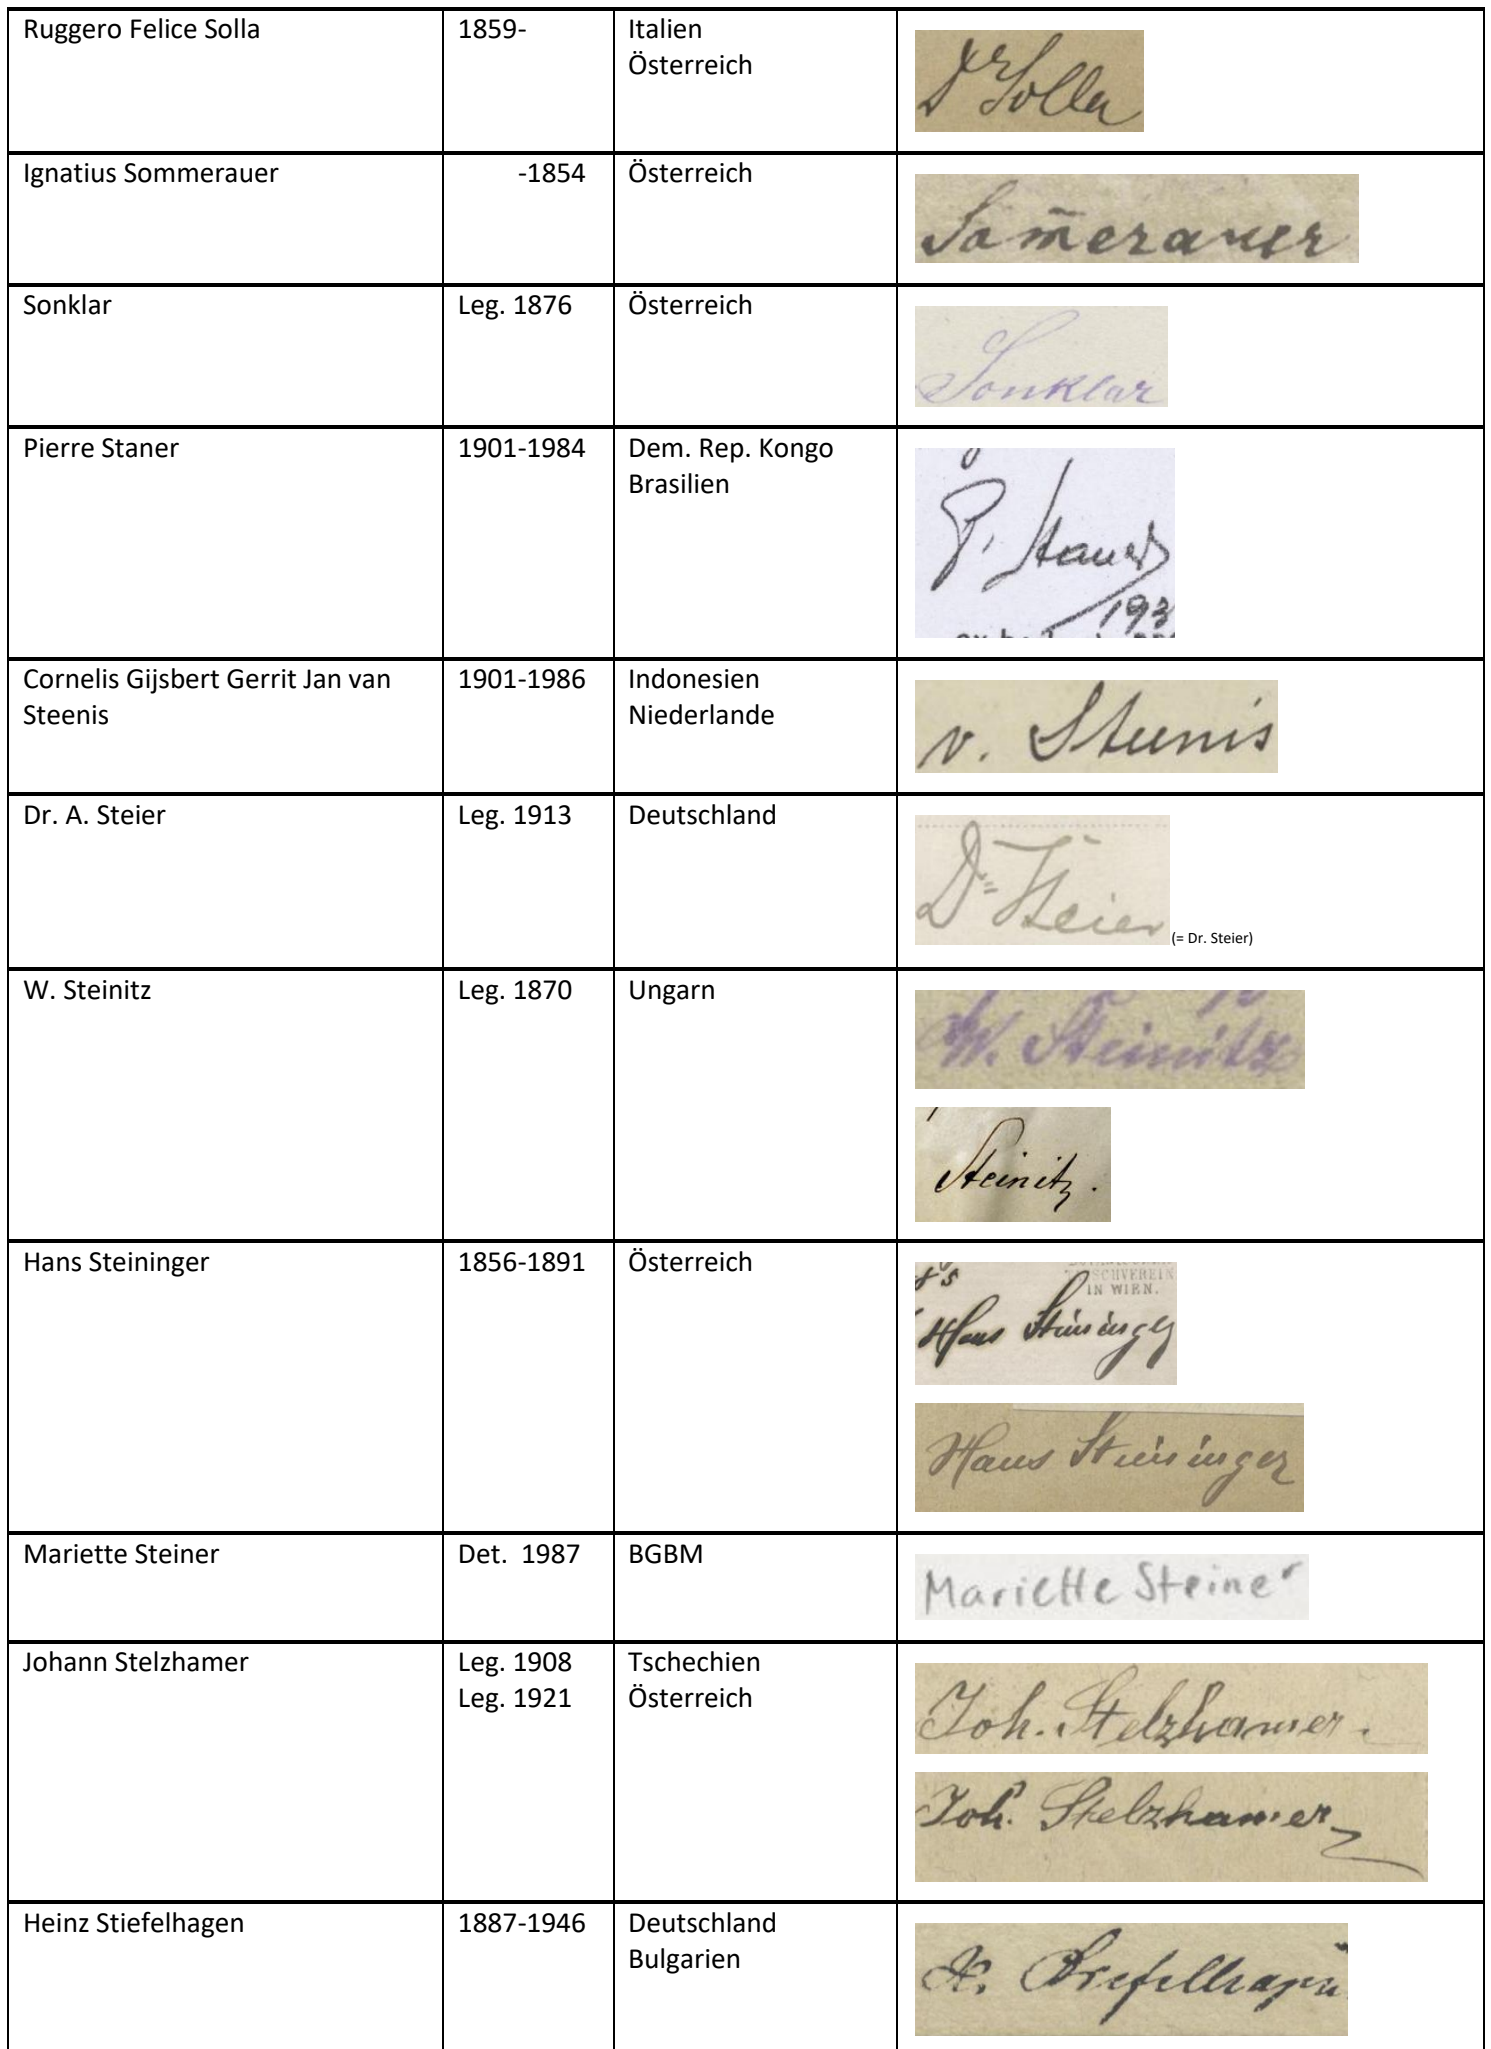 Ruggero Felice Solla 1859- Italien
Österreich
Dr Solla
Ignatius Sommerauer -1854 Österreich
Som̄erauer
Sonklar Leg. 1876 Österreich
Sonklar
Pierre Staner 1901-1984 Dem. Rep. Kongo
Brasilien
P. Staner
193
Cornelis Gijsbert Gerrit Jan van 1901-1986 Indonesien
Steenis Niederlande
v. Steenis
Dr. A. Steier Leg. 1913 Deutschland
Dr Steier (= Dr. Steier)
W. Steinitz Leg. 1870 Ungarn
W. Steinitz
Steinitz.
Hans Steininger 1856-1891 Österreich
SCHVEREIN
IN WIEN.
Hans Steininger
Hans Steininger
Mariette Steiner Det. 1987 BGBM
Mariette Steiner
Johann Stelzhamer Leg. 1908 Tschechien
Leg. 1921 Österreich
Joh. Stelzhamer.
Joh. Stelzhamer
Heinz Stiefelhagen 1887-1946 Deutschland
Bulgarien
H. Stiefelhagen